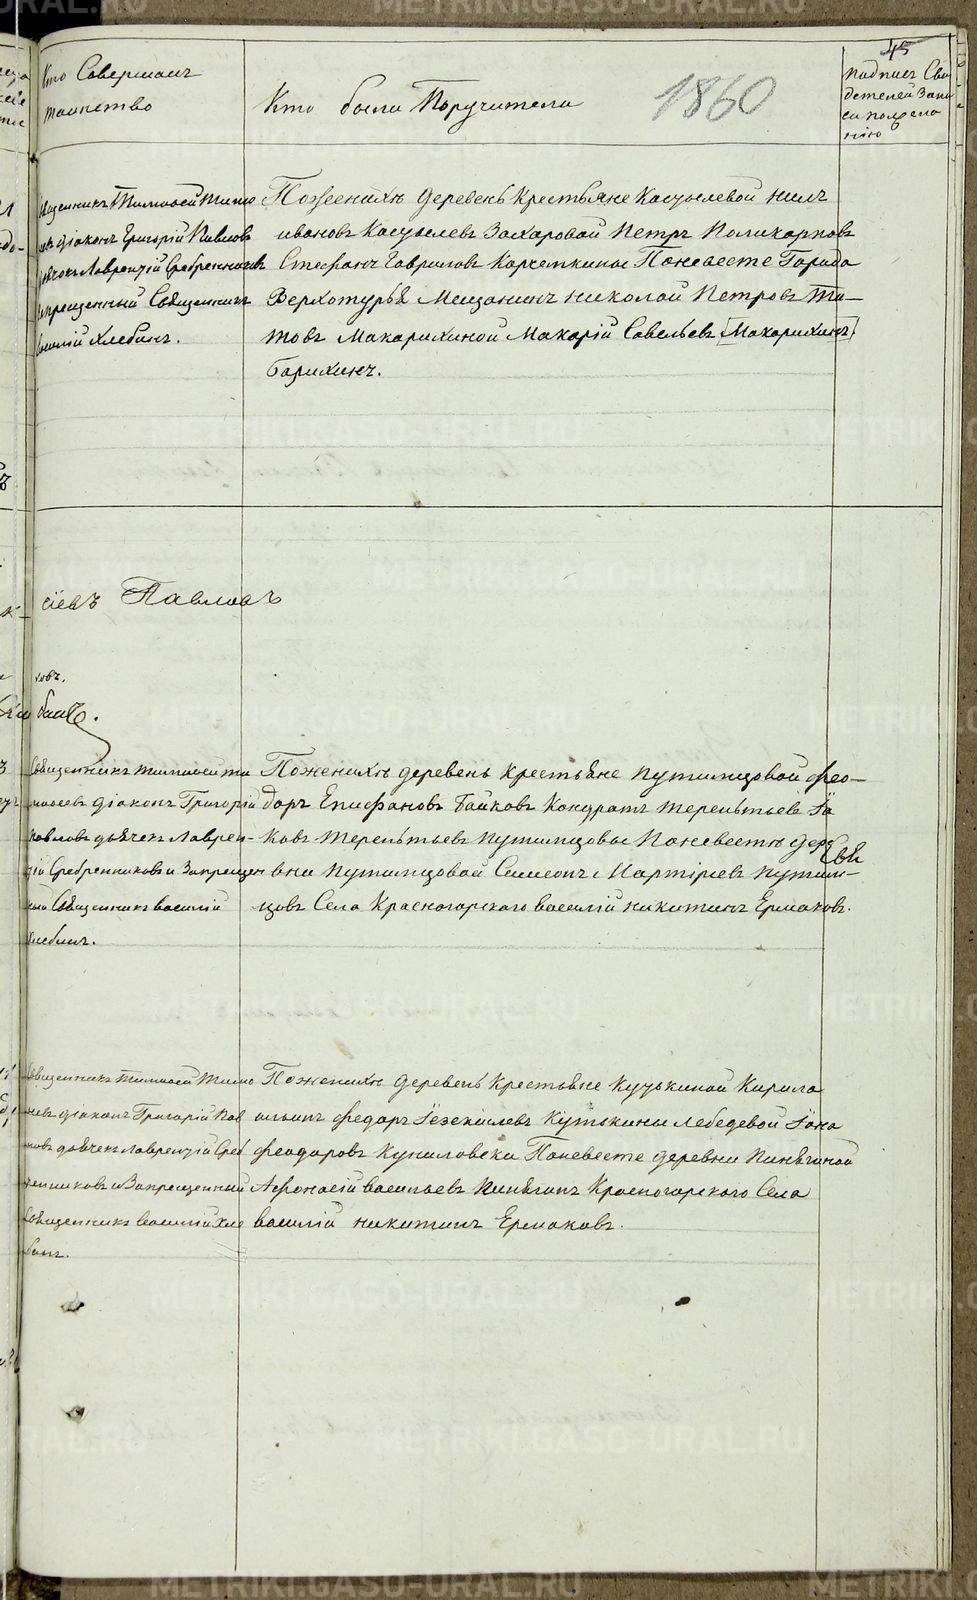 45
Кто Совершалъ
таинство
Кто были Поручители
1860
Подпись Сви
детелей Запи
си пожела
нію
Священникъ Тимоѳей Тимо
діаконъ Григорій Павловъ
Лаврентій Сребренниковъ
Запрещенный Священникъ
Василій Хлебинъ.
Поженихѣ деревень Крестьяне Касуолевой Нилъ
Ивановъ Касуолевъ Захаровой Петръ Поликарповъ
Стефанъ Гавриловъ Карчемкины Поневесте Города
Верхотурья Мещанинъ Николай Петровъ Ти-
товъ Макарихиной Макарій Савельевъ [Макарихинъ]
Барихинъ.
сіевъ Павловъ
ковъ.
бинъ.
Священникъ Тимоѳей Ти
моѳеевъ діаконъ Григорій
Павловъ дьячекъ Лаврен-
тій Сребренниковъ и Запрещен
ный Священникъ Василій
Хлебинъ.
Поженихѣ деревень Крестьяне Путимцовой Фео-
доръ Епифановъ Байковъ Кондратъ Терентьевъ Іа
ковъ Терентьевъ Путимцовы Поневестѣ дере
вни Путимцовой Симеонъ Мартіріевъ Путим-
цовъ Села Красногорскаго Василій Никитинъ Ермаковъ.
Священникъ Тимоѳей Тимо
ѳеевъ діаконъ Григорій Пав
ловъ дьячекъ Лаврентій Среб
ренниковъ и Запрещенный
Священникъ Василій Хле
бинъ.
Поженихѣ деревень Крестьяне Кутькиной Кирило
Ильинъ Федоръ Іезекіилевъ Кутькины Лебедевой Іона
Феодоровъ Куниловски Поневесте деревни Пинягиной
Афонасій Васильевъ Пинягинъ Красногорскаго Села
Василій Никитинъ Ермаковъ.
METRIKI.GASO-URAL.RU